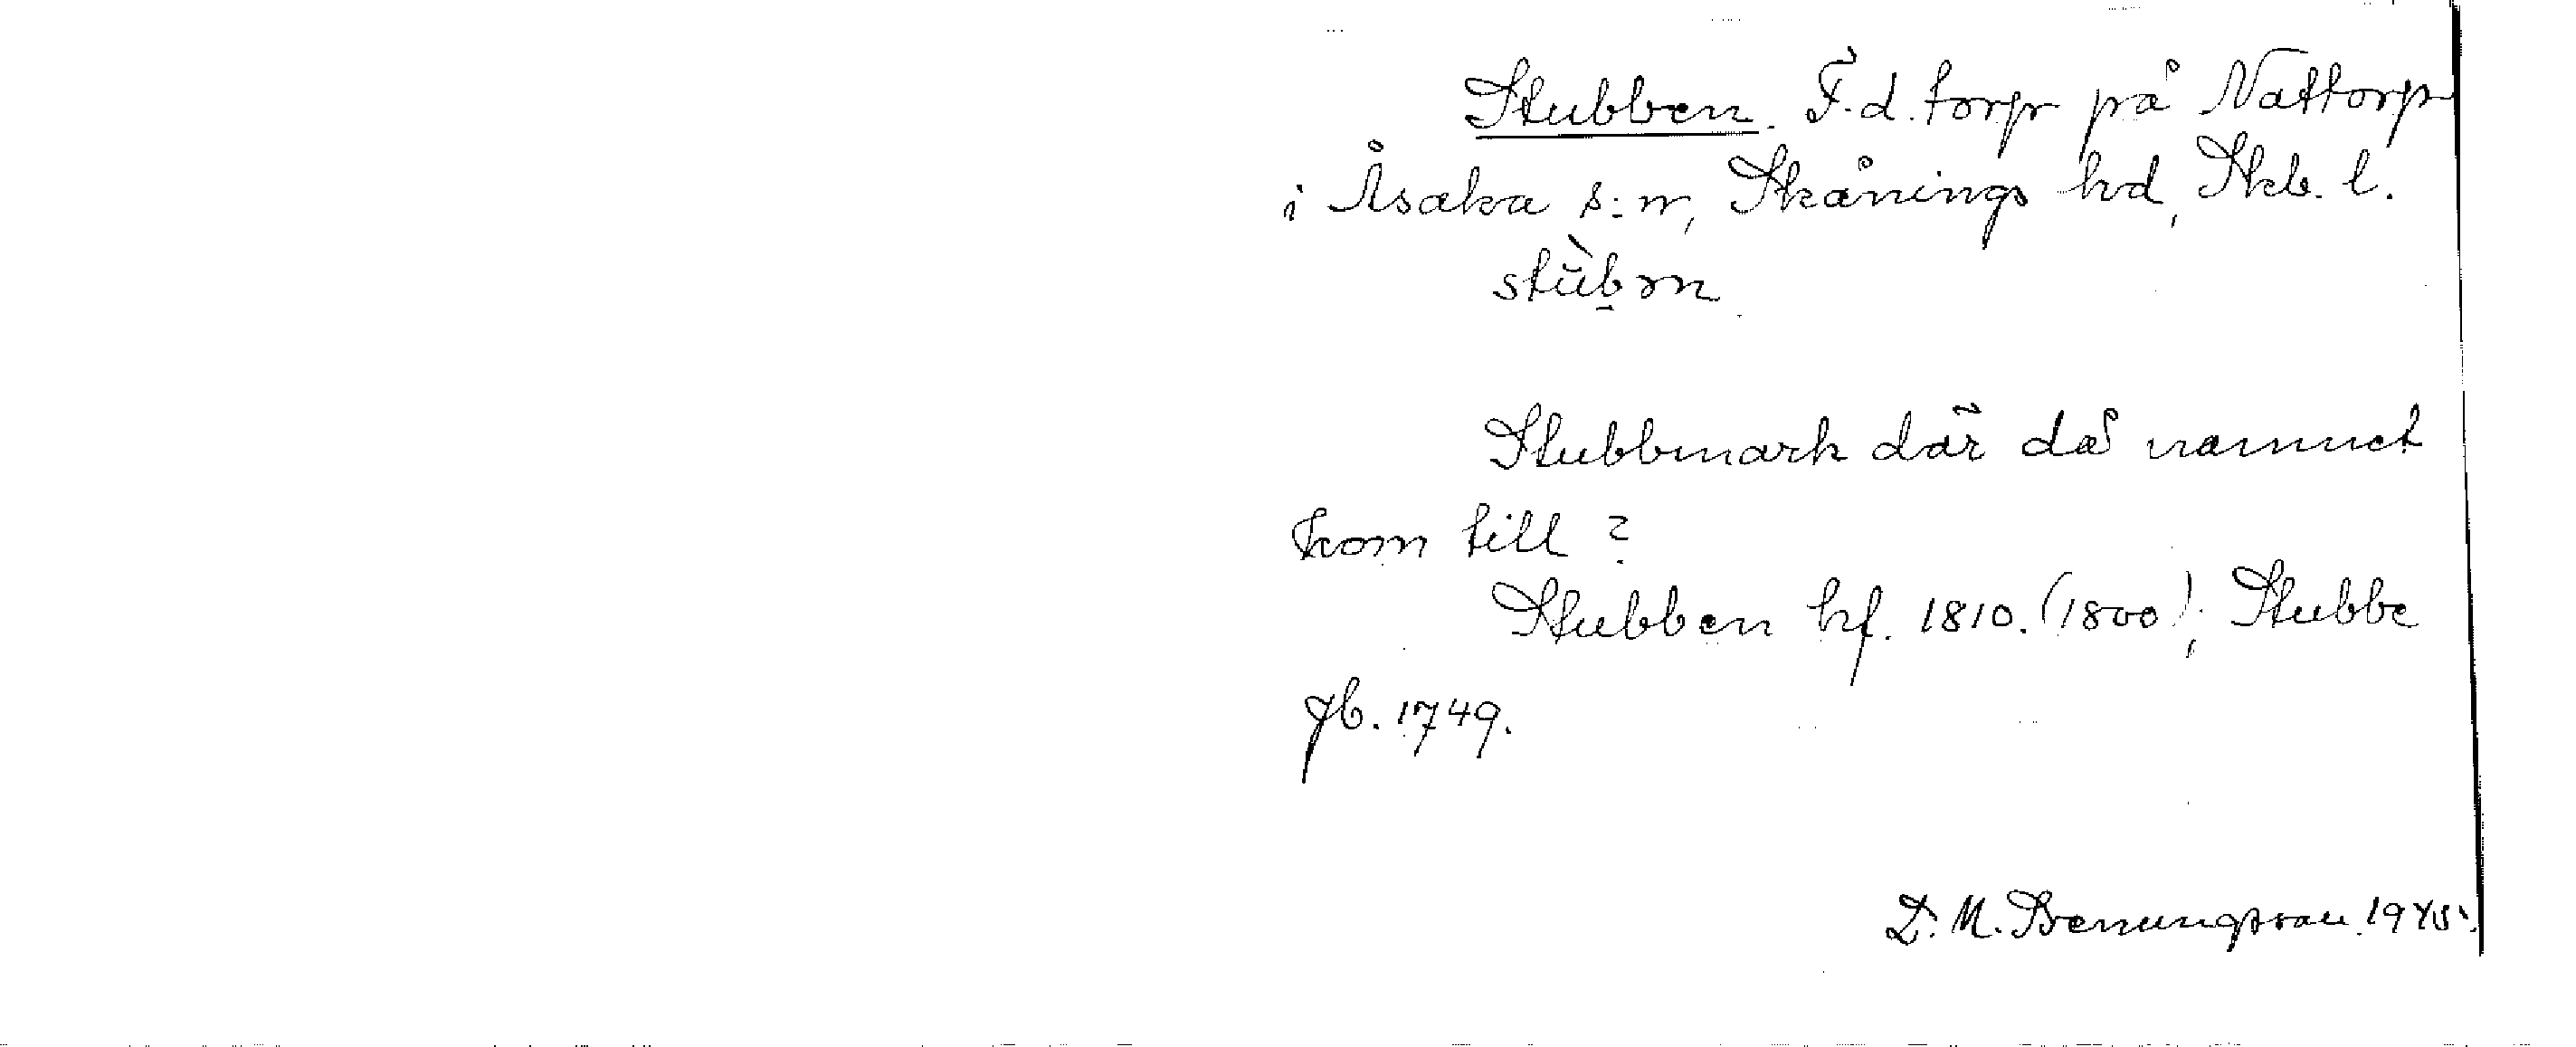 Stubben. F.d. torp på Nattorp
i Åsaka s:n, Skånings hd, Skb. l.
stùb̠ən
Stubbmark där då namnet
kom till ?
Stubben hf. 1810. (1800); Stubbe
jb. 1749.
D. M. 1945.